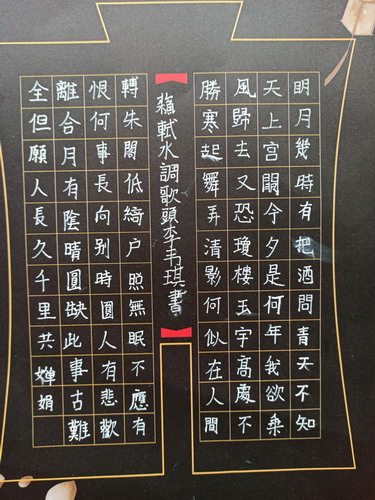 明月幾時有把酒問青天不知
天上宮闕今夕是何年我欲乘
風歸去又恐瓊樓玉宇高處不
勝寒起舞弄清影何似在人間
蘇軾水調歌頭李韋琪書
轉朱閣低綺户照無眠不應有
恨何事長向别時圓人有悲歡
離合月有陰晴圓缺此事古難
全但願人長久千里共嬋娟